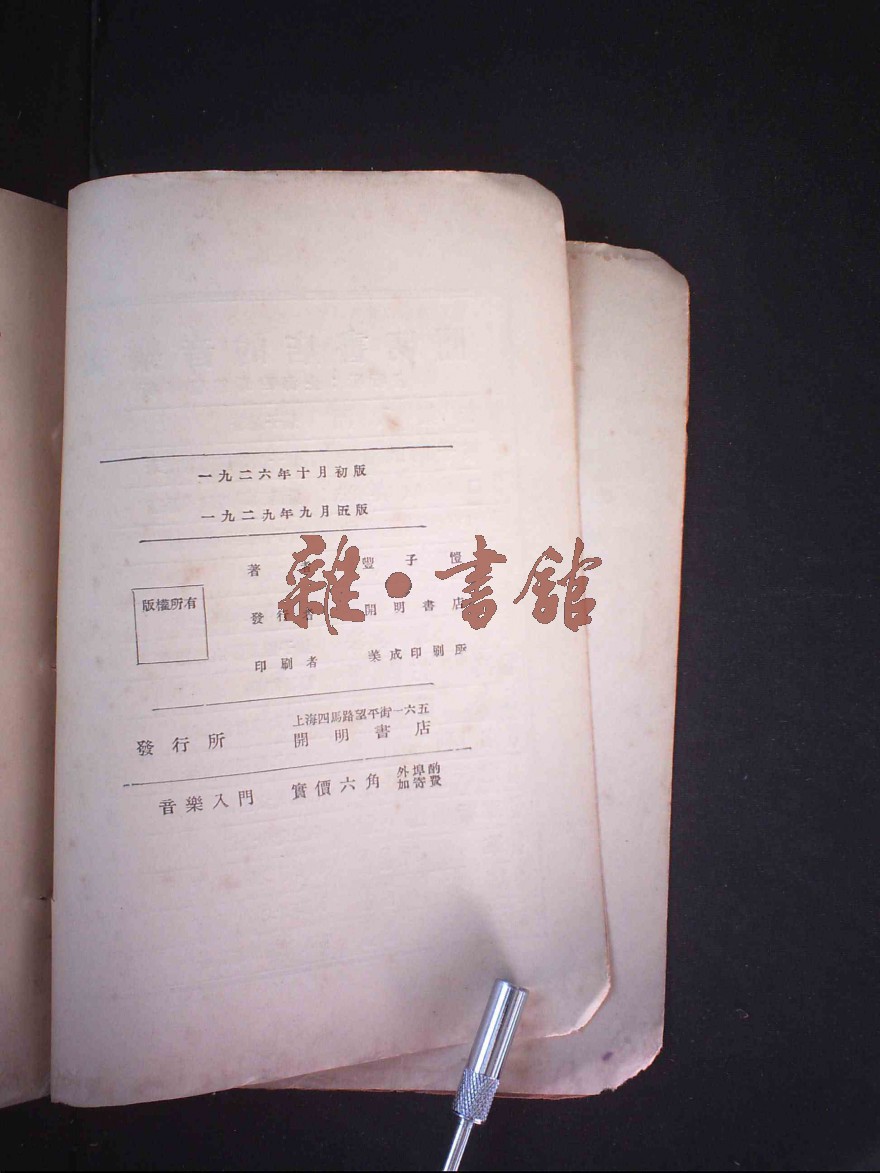 一九二六年十月初版
一九二九年九月五版
著 者 豐子愷
版權所有
發行者 開明書店
印刷者 美成印刷所
發行所
上海四馬路望平街一六五
開明書店
音樂入門 實價六角 外埠酌加寄費
雜·書館